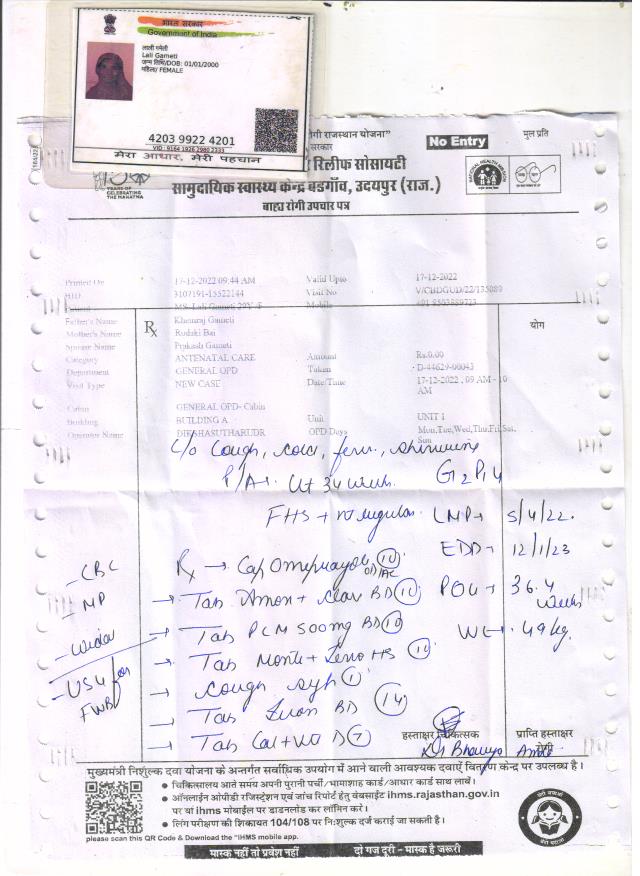 भारत सरकार
Government of India
लाली गमेती
Lali Gameti
जन्म तिथि/DOB: 01/01/2000
महिला/ FEMALE
4203 9922 4201
VID: 9164 1926 2980 2333
मेरा आधार, मेरी पहचान
राजस्थान योजना"
No Entry
मूल प्रति
रिलीफ सोसायटी
सामुदायिक स्वास्थ्य केन्द्र बडगाँव, उदयपुर (राज.)
बाह्य रोगी उपचार पत्र
YEARS OF
CELEBRATING
THE MAHATMA
NATIONAL HEALTH MISSION
Printed On 17-12-2022 09:44 AM Valid Upto 17-12-2022
Visit No
Mobile
Father's Name Khemraj Gameti
Mother's Name Rodaki Bai
Spouse Name Prakash Gameti
Category ANTENATAL CARE Amount Rs.0.00
Department GENERAL OPD Token D-44629-00043
Visit Type NEW CASE Date/Time 17-12-2022 , 09 AM - 10 AM
Cabin GENERAL OPD- Cabin
Building BUILDING A Unit UNIT 1
Operator Name OPD Days Mon,Tue,Wed,Thu,Fri,Sat,Sun
Rx
योग
c/o Cough, cold,
P/A+ Ut 34 week.
FHS + regular LMP+ 5/4/22.
EDD+ 12/1/23
POG+ 36.4 weeks
Wt. 49 kg.
- CBC
- MP
- Widal
- USG for FWB
Rx → Cap Omeprazole OD/AC (10)
→ Tab Amox + clav BD (10)
→ Tab PCM 500mg BD (10)
→ Tab Monte + Levo HS (10)
→ Cough syp (1)
→ Tab BD (14)
→ Tab Cal + Vit D (7)
हस्ताक्षर चिकित्सक
प्राप्ति हस्ताक्षर
रोगी
मुख्यमंत्री निशुल्क दवा योजना के अन्तर्गत सर्वाधिक उपयोग में आने वाली आवश्यक दवाऐं वितरण केन्द्र पर उपलब्ध है।
• चिकित्सालय आते समय अपनी पुरानी पर्ची/भामाशाह कार्ड/आधार कार्ड साथ लावें।
• ऑनलाईन ओपीडी रजिस्ट्रेशन एवं जांच रिपोर्ट हेतु वेबसाईट ihms.rajasthan.gov.in
पर या ihms मोबाईल पर डाउनलोड कर लॉगिन करे।
• लिंग परीक्षण की शिकायत 104/108 पर निःशुल्क दर्ज कराई जा सकती है।
please scan this QR Code & Download the "IHMS mobile app.
मास्क नहीं तो प्रवेश नहीं
दो गज दूरी - मास्क है जरूरी